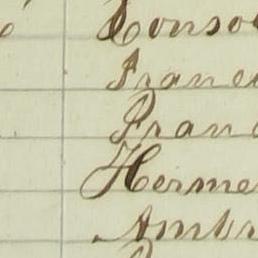 Conso
Franc
Franc
Herme
Ambr